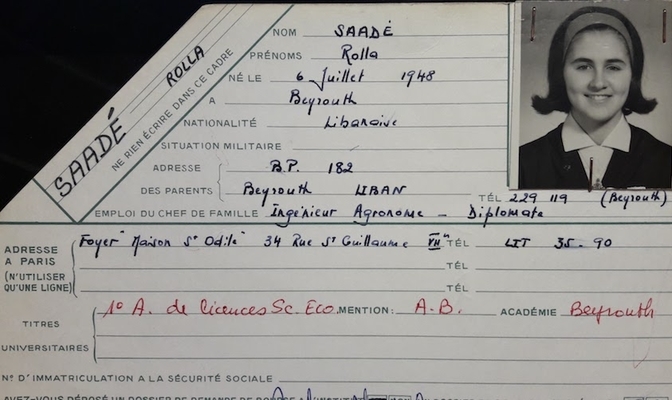 SAADÉ ROLLA
NE RIEN ÉCRIRE DANS CE CADRE
NOM SAADÉ
PRÉNOMS Rolla
NÉ LE 6 Juillet 1948
A Beyrouth
NATIONALITÉ Libanaise
SITUATION MILITAIRE
ADRESSE B.P. 182
DES PARENTS Beyrouth LIBAN TÉL 229 119 (Beyrouth)
EMPLOI DU CHEF DE FAMILLE Ingénieur Agronome - Diplomate
ADRESSE A PARIS (N'UTILISER QU'UNE LIGNE) Foyer "Maison St Odile" 34 Rue St Guillaume VII TÉL LIT 35-90
TÉL
TÉL
TITRES UNIVERSITAIRES 1° A. de licences Sc. Eco. MENTION: A.B. ACADÉMIE Beyrouth
N° D'IMMATRICULATION A LA SÉCURITÉ SOCIALE
AVEZ-VOUS DÉPOSÉ UN DOSSIER DE DEMANDE DE